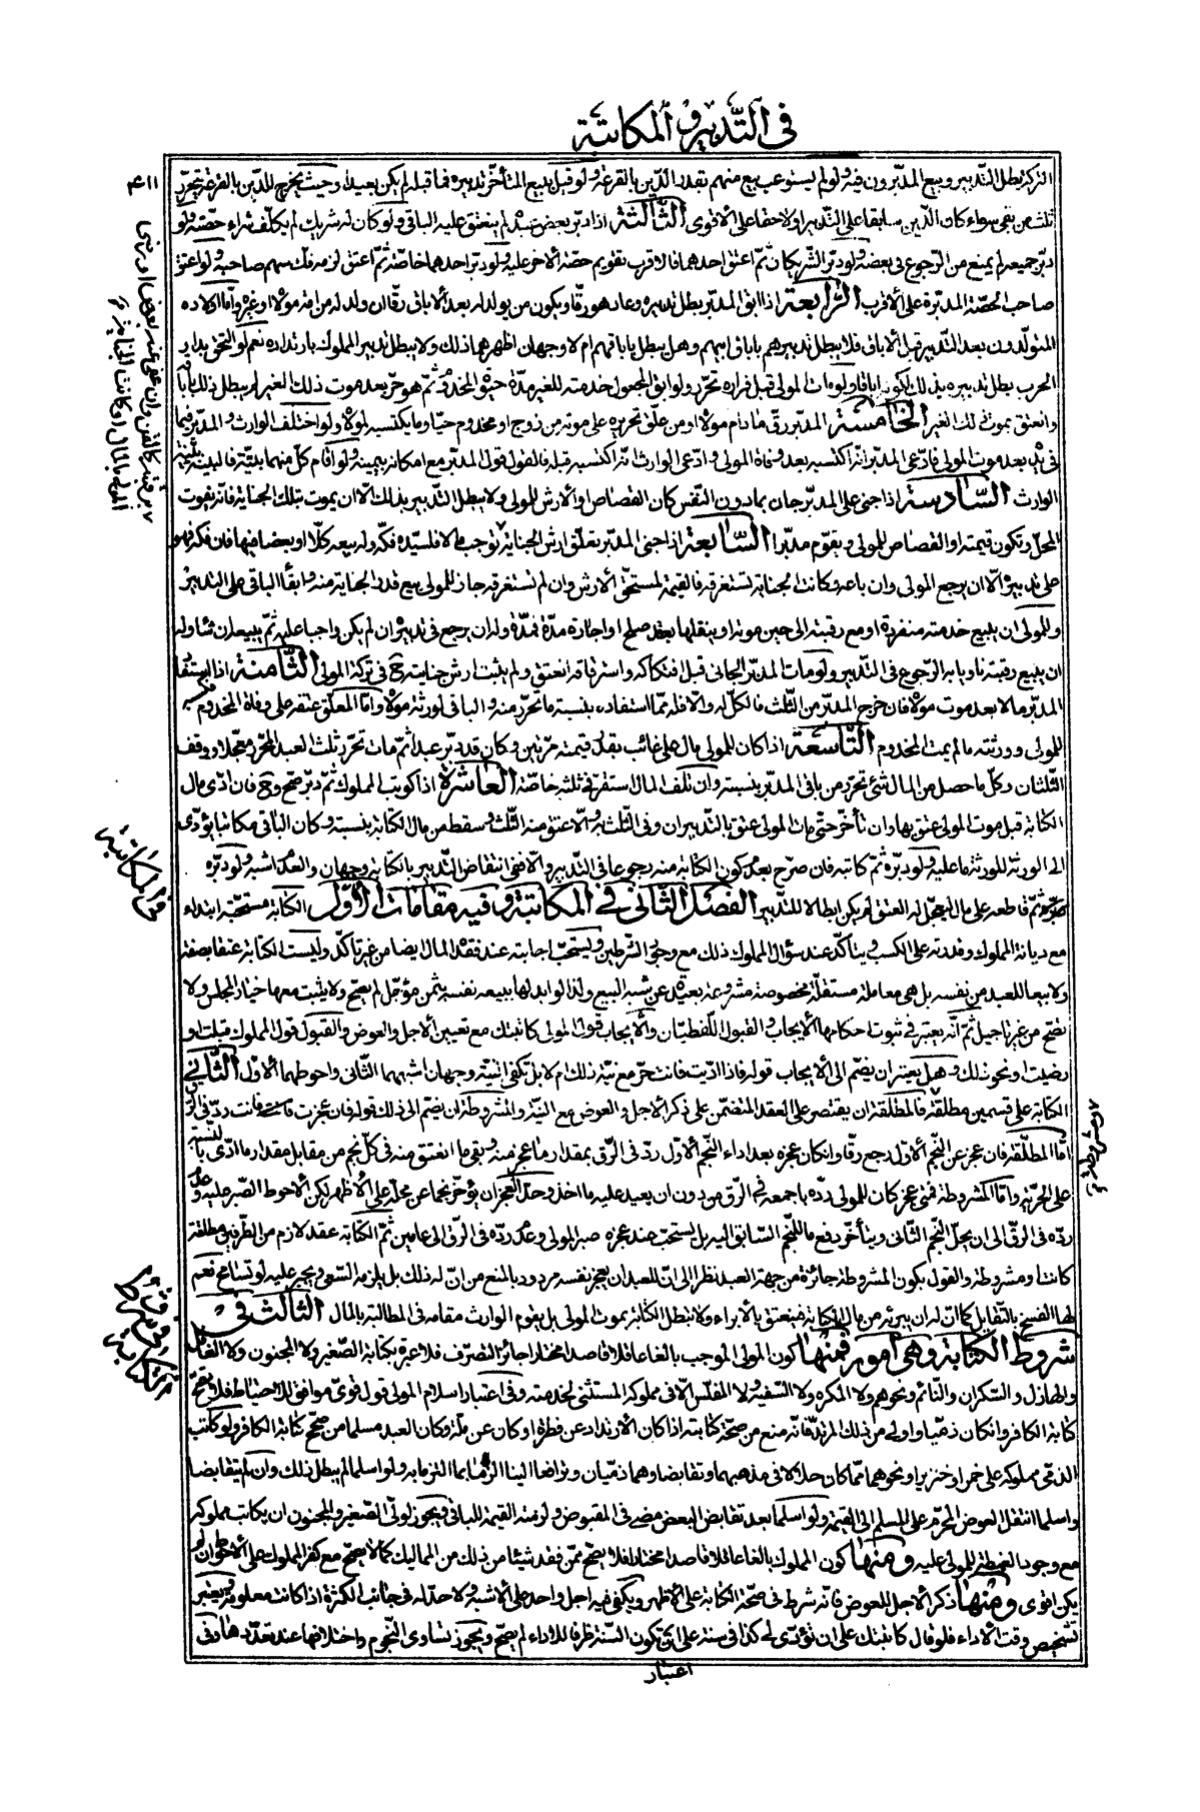 في التدبير والمكاتبة
التركة بطل التدبير وبيع المدبرون فيه ولو لم يستوعب بيع منهم بقدر الدين بالقرعة ولو قيل ببيع المتأخر تدبيره فما قبله لم يكن بعيدا وحيث يخرج للدين بالقرعة تحرر
ثلث من بقي سواء كان الدين سابقا على التدبير او لاحقا على الاقوى الثالثة اذا دبر بعض عبد لم ينعتق عليه الباقي ولو كان له شريك لم يكلف شراء حصته ولو
دبر جميعه لم يمنع من الرجوع في بعضه ولو دبر الشريكان ثم اعتق احدهما فالاقرب تقويم حصة الاخر عليه ولو دبر احدهما خاصة ثم اعتق لزمه فك سهم صاحبه ولو اعتق
صاحب الحصة المدبرة على الاقرب الرابعة اذا ابق المدبر بطل تدبيره وعاد هو رقا ويكون من يولد له بعد الاباق رقا ان ولد له من امة مولاه او غيره واما اولاده
المتولدون بعد التدبير قبل الاباق فلا يبطل تدبيرهم باباق ابيهم وهل يبطل باباقهم ام لا وجهان اظهرهما ذلك ولا يبطل تدبير المملوك بارتداده نعم لو التحق بدار
الحرب بطل تدبيره بذلك لكونه اباقا ولو مات المولى قبل فراره تحرر ولو ابق المجعول خدمته للغير مدة حيوة المخدوم ثم هو حر بعد موت ذلك الغير لم يبطل ذلك باباقه
وانعتق بموت ذلك الغير الخامسة المدبر رق ما دام مولاه او من علق تحريره على موته من زوج او مخدوم حيا وما يكتسبه لمولاه ولو اختلف الوارث والمدبر فيما
في يده بعد موت المولى فادعى المدبر انه اكتسبه بعد وفاة المولى وادعى الوارث انه اكتسبه قبله فالقول قول المدبر مع امكانه بيمينه ولو اقام كل منهما بينة فالبينة بينة
الوارث السادسة اذا جنى على المدبر جان بما دون النفس كان القصاص او الارش للمولى ولا يبطل التدبير بذلك الا ان يموت بتلك الجناية فانه يفوت
المحل وتكون قيمته او القصاص للمولى ويقوم مدبرا السابعة اذا جنى المدبر تعلق ارش الجناية برقبته فلسيده فكه وله بيعه كلا او بعضا فيها فان فكه فهو
على تدبيره الا ان يرجع المولى وان باعه وكانت الجناية تستغرقه فالقيمة لمستحق الارش وان لم تستغرقه جاز للمولى بيع قدر الجناية منه وابقاء الباقي على التدبير
وللمولى ان يبيع خدمته منفردة او مع رقبته الى حين موته او ينقلها بعقد صلح او اجارة مدة فمدة وله ان يرجع في تدبيره ان لم يكن واجبا عليه ثم يبيعه ان شاء وله
ان يبيع رقبته ناويا به الرجوع في التدبير ولو مات المولى قبل افتكاكه واسترقاقه انعتق ولم يثبت ارش جنايته ح في تركة المولى الثامنة اذا استفاد
المدبر مالا بعد موت مولاه فان خرج المدبر من الثلث فالكل له والا فله مما استفاده بنسبة ما تحرر منه والباقي لورثة مولاه واما المعلق عتقه على وفاة المخدوم
للمولى وورثته ما لم يمت المخدوم التاسعة اذا كان للمولى مال غائب بقدر قيمته مرتين وكان قد دبر عبدا ثم مات تحرر ثلث العبد المحرر معجلا ووقف
الثلثان وكل ما حصل من المال شيء تحرر من باقي المدبر بنسبته وان تلف المال استقر في ثلثه خاصة العاشرة اذا كوتب المملوك ثم دبر صح وح فان ادى مال
الكتابة قبل موت المولى عتق بها وان تأخر حتى مات المولى عتق بالتدبير ان وفى الثلث به والا عتق منه الثلث وسقط من مال الكتابة بنسبته وكان الباقي مكاتبا يؤدي
الى الورثة ما عليه ولو دبره ثم كاتبه فان صرح بعدم كون الكتابة منه رجوعا في التدبير والا ففي انتقاض التدبير بالكتابة وجهان والعدم اشبه ولو دبره
ثم قاطعه على مال ليعجل له العتق لم يكن ابطالا للتدبير الفصل الثاني في المكاتبة وفيه مقامات الاول الكتابة مستحبة ابتداء
مع ديانة المملوك وقدرته على الكسب ويتأكد عند سؤال المملوك ذلك مع وجود الشرطين ويستحب اجابته عند فقد المال ايضا من غير تأكد وليست الكتابة عتقا بصفة
ولا بيعا للعبد من نفسه بل هي معاملة مستقلة مخصوصة مشروعة بعيدة عن شبه البيع ولذا لو ابدلها ببيعه نفسه بثمن مؤجل لم يصح ولا يثبت معها خيار المجلس ولا
تصح من غير تأجيل ثم انه يعتبر في ثبوت احكامها الايجاب والقبول اللفظيان والايجاب قول المولى كاتبتك مع تعيين الاجل والعوض والقبول قول المملوك قبلت او
رضيت او نحو ذلك وهل يعتبر ان يضم الى الايجاب قوله فاذا اديت فانت حر مع نية ذلك ام لا بل تكفي النية وجهان اشبههما الثاني واحوطهما الاول الثاني
الكتابة على قسمين مطلقة فالمطلقة ان يقتصر على العقد المتضمن على ذكر الاجل والعوض مع النية والمشروطة ان يضم الى ذلك قوله فان عجزت فانت رد في الرق
اما المطلقة فان عجز عن النجم الاول رجع رقا وان كان عجزه بعد اداء النجم الاول رد في الرق بمقدار ما عجز منه وبقي ما انعتق منه في كل نجم من مقابل مقدار ما ادى بالنسبة
على الحرية واما المشروطة فمتى عجز كان للمولى رده باجمعه في الرق من دون ان يعيد عليه ما اخذ وحد العجز ان يؤخر نجما عن محله على الاظهر لكن الاحوط الصبر عليه وعدم
رده في الرق الى ان يحل النجم الثاني ويتأخر دفع ما للنجم السابق اليه بل يستحب عند عجزه صبر المولى وعدم رده في الرق الى عامين ثم الكتابة عقد لازم من الطرفين مطلقة
كانت او مشروطة والقول بكون المشروطة جائزة من جهة العبد نظرا الى ان للعبد ان يعجز نفسه مردود بالمنع من ان له ذلك بل يلزمه السعي ويجبر عليه لو تسامح نعم
لهما الفسخ بالتقايل كما ان له ان يبرئه من مال الكتابة فينعتق بالابراء ولا تبطل الكتابة بموت المولى بل يقوم الوارث مقامه في المطالبة بالمال الثالث في
شروط الكتابة وهي امور فمنها كون المولى الموجب بالغا عاقلا قاصدا مختارا جائز التصرف فلا عبرة بكتابة الصغير ولا المجنون ولا الغافل
والهازل والسكران والنائم ونحوهم ولا المكره ولا السفيه ولا المفلس الا في مملوكه المستثنى لخدمته وفي اعتبار اسلام المولى قول قوي موافق للاحتياط فلا يصح
كتابة الكافر وان كان ذميا واولى من ذلك المرتد فانه منع من صحة كتابته اذا كان الارتداد عن فطرة او كان عن ملة وكان العبد مسلما من صحح كتابة الكافر ولو كاتب
الذمي مملوكه على خمر او خنزير او نحوهما مما كان حلالا في مذهبهما وتقابضا وهما ذميان وترافعا الينا الزما بما التزما به ولو اسلما لم يبطل ذلك وان لم يتقابضا
واسلما انتقل العوض المحرم على المسلم الى القيمة ولو اسلما بعد تقابض البعض مضى في المقبوض ولزمته القيمة للباقي ويجوز لولي الصغير والمجنون ان يكاتب مملوكه
مع وجود الغبطة للمولى عليه ومنها كون المملوك بالغا عاقلا قاصدا مختارا فلا يصح ممن فقد شيئا من ذلك من المماليك كما لا يصح مع كفر المملوك على الاحوط ان لم
يكن اقوى ومنها ذكر الاجل للعوض فانه شرط في صحة الكتابة على الاظهر ويكفي فيه اجل واحد على الاشبه ولا حد له في جانب الكثرة اذا كانت معلومة ويعتبر
تشخيص وقت الاداء فلو قال كاتبتك على ان تؤدي لي كذا في سنة على ان تكون السنة ظرفا للاداء لم يصح ويجوز تساوي النجوم واختلافها عند تعددها وفي
اعتبار
٤١١
في المكاتبة
في شرط الكتابة